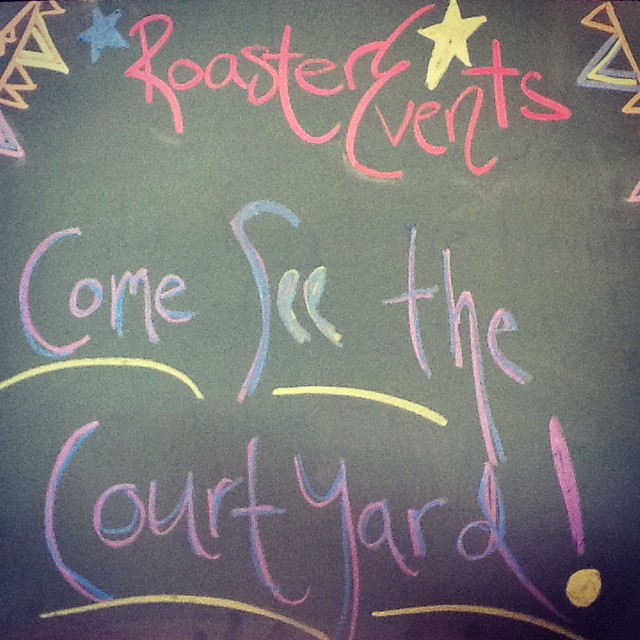 Roaster Events
Come See the
Courtyard!